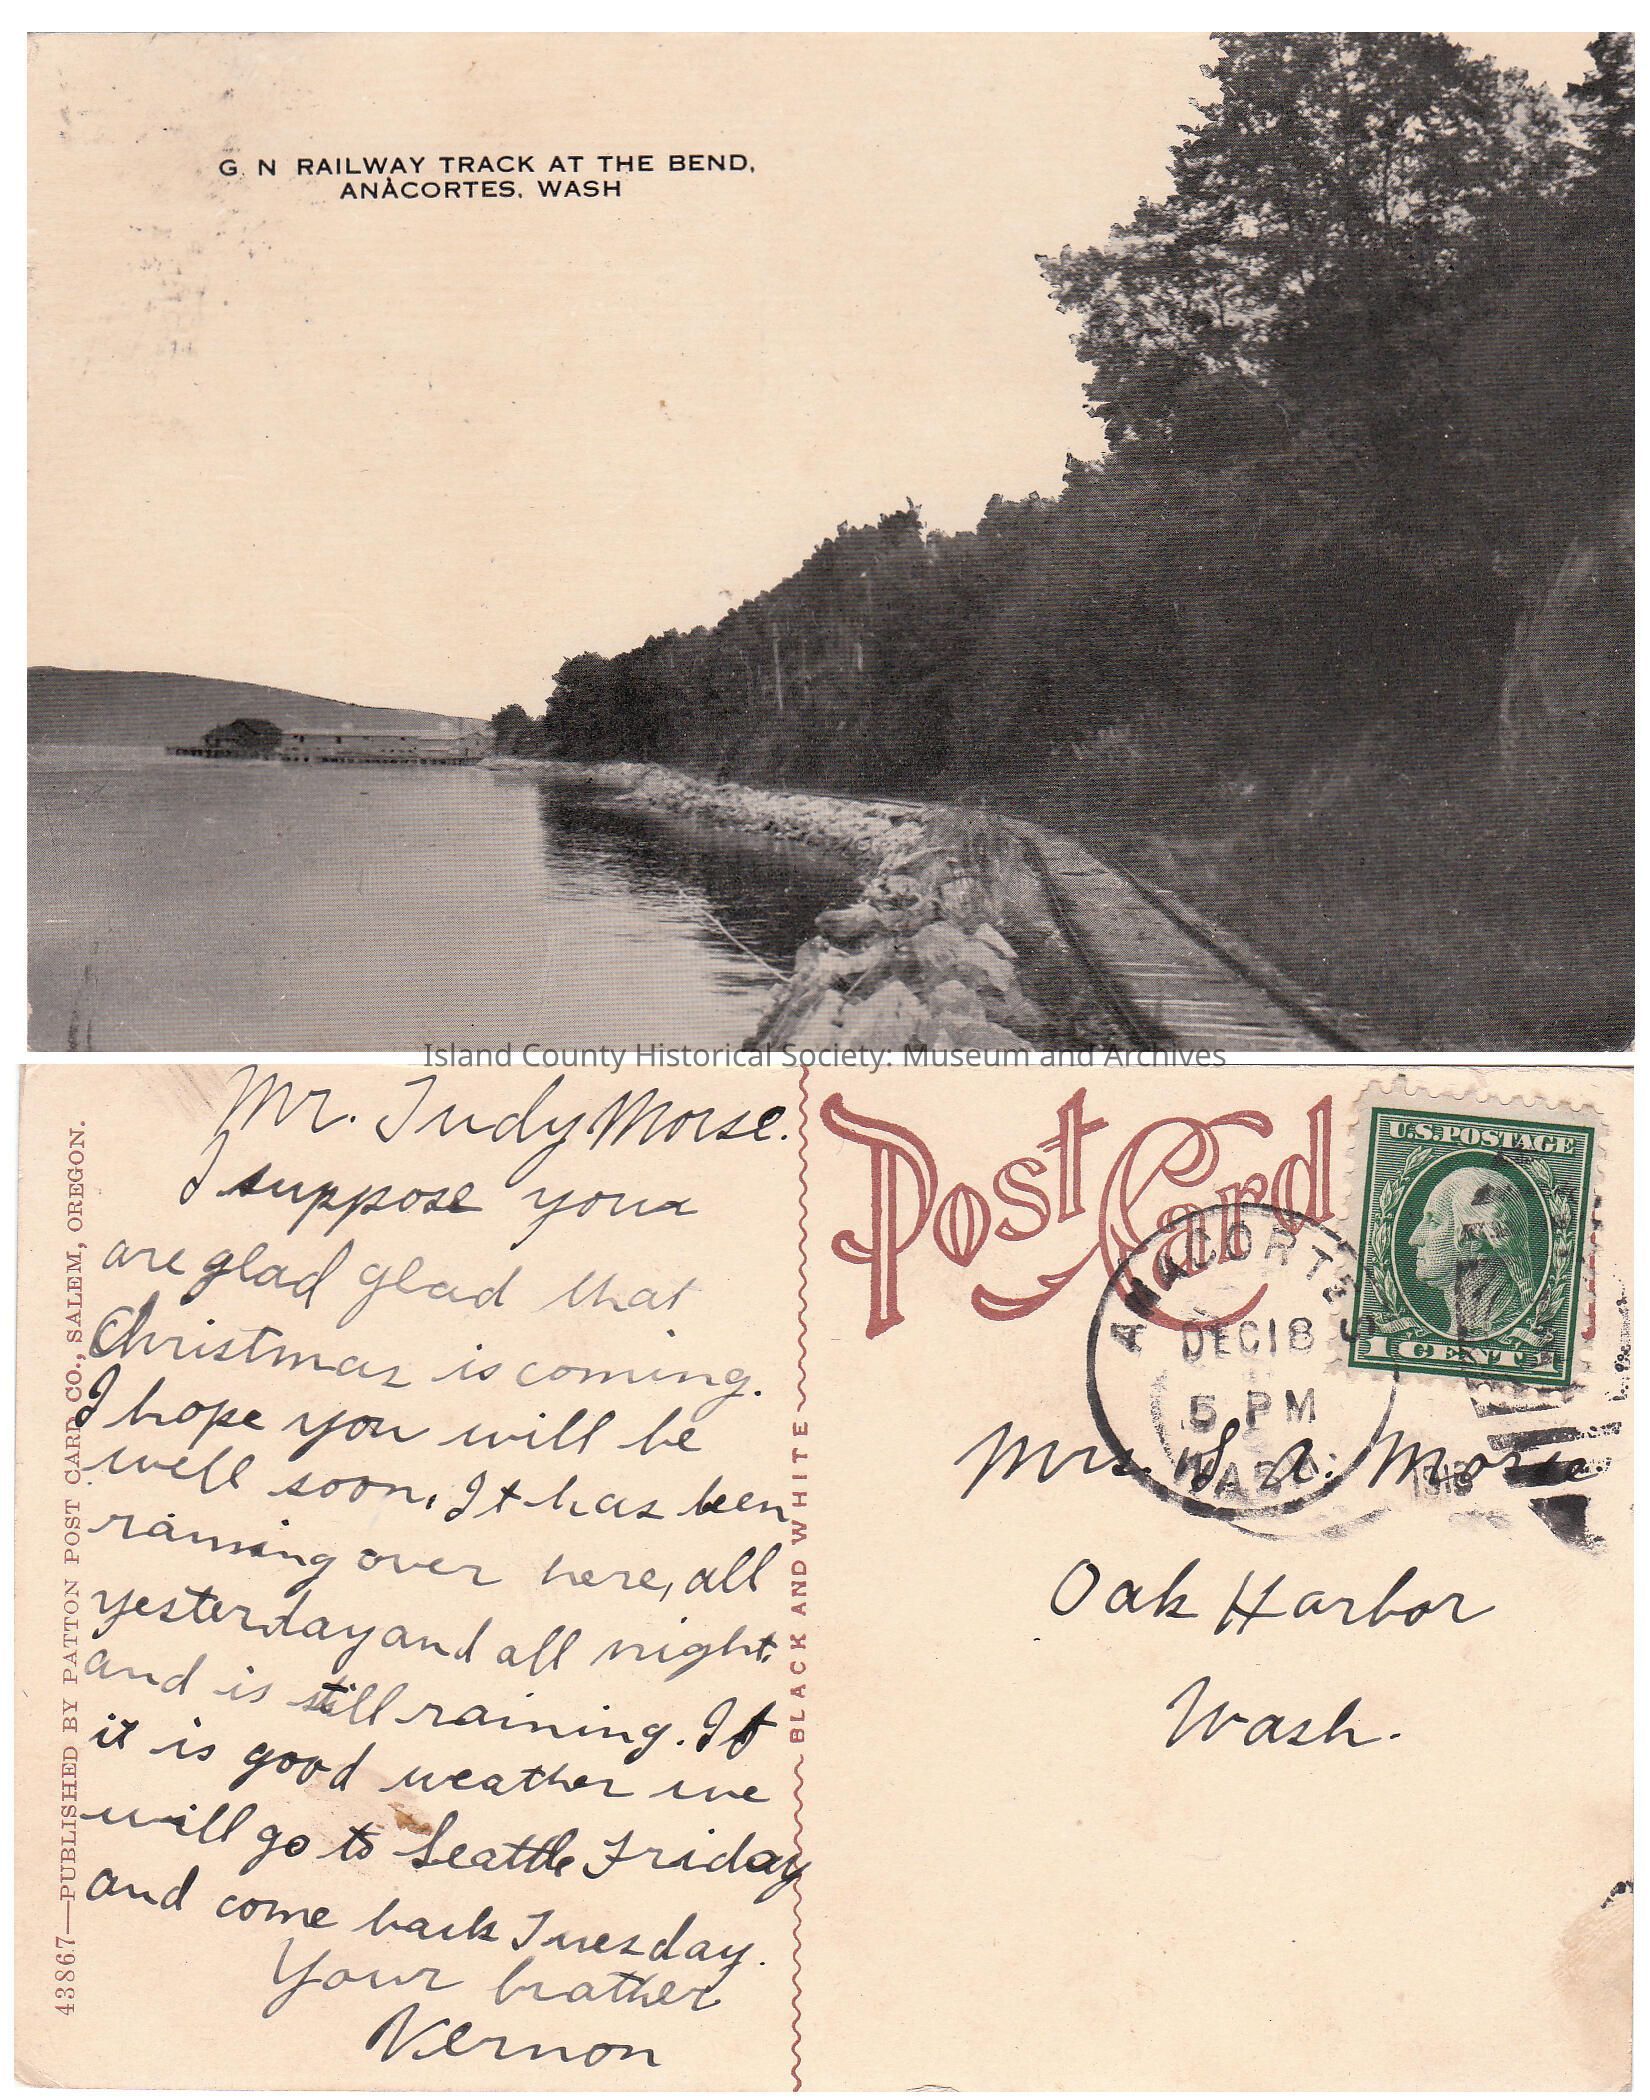 G N RAILWAY TRACK AT THE BEND,
ANACORTES, WASH
Island County Historical Society: Museum and Archives
Mr. Judy Morse.
I suppose your
are glad glad that
Christmas is coming.
I hope you will be
well soon. It has been
raining over here, all
yesterday and all night.
and is still raining. If
it is good weather we
will go to Seattle Friday
and come back Tuesday.
Your brather
Vernon
43867—PUBLISHED BY PATTON POST CARD CO., SALEM, OREGON.
BLACK AND WHITE
Post Card
U.S. POSTAGE
1 CENT 1
ANACORTES
DEC 18
5 PM
WASH.
Mrs. S. A. Morse.
Oak Harbor
Wash.